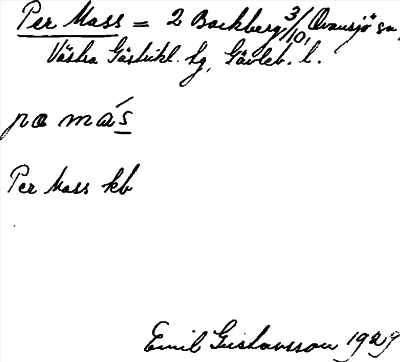 Per Mass = 2 Backberg 3/10, Ovansjö sn,
Västra Gästrikl. hg, Gävleb. l.
pa más
Per Mass kb
Emil Gustavsson 1929